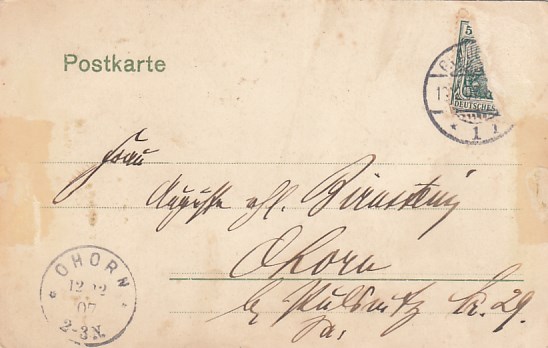 Postkarte
5
DEUTSCHES
* 1
Frau
Auguste vhl. Birnstein
Ohorn
b. Pulsnitz Nr. 29.
Sa.
OHORN
12 12
07
2-3N.